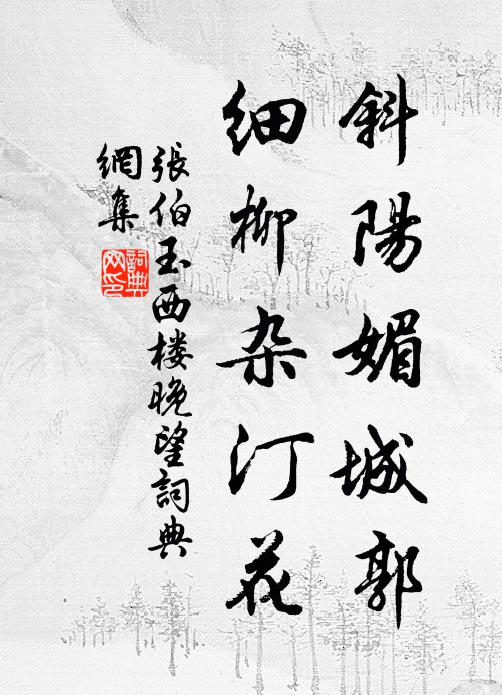 斜陽媚城郭
细柳杂汀花
張伯玉西楼晚望詞典
網集
詞典
网印